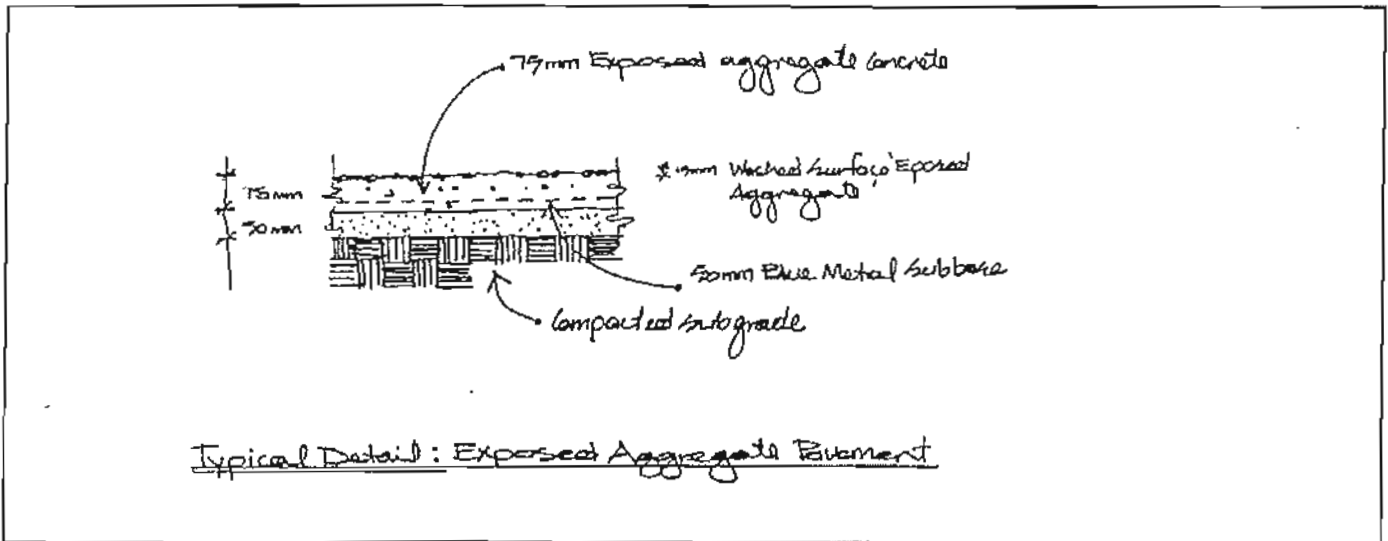 75mm Exposed aggregate concrete
Washed surface 'Eposed
Aggregate'
75mm
50mm
50mm Blue Metal subbase
Compacted subgrade
Typical Detail: Exposed Aggregate Pavement